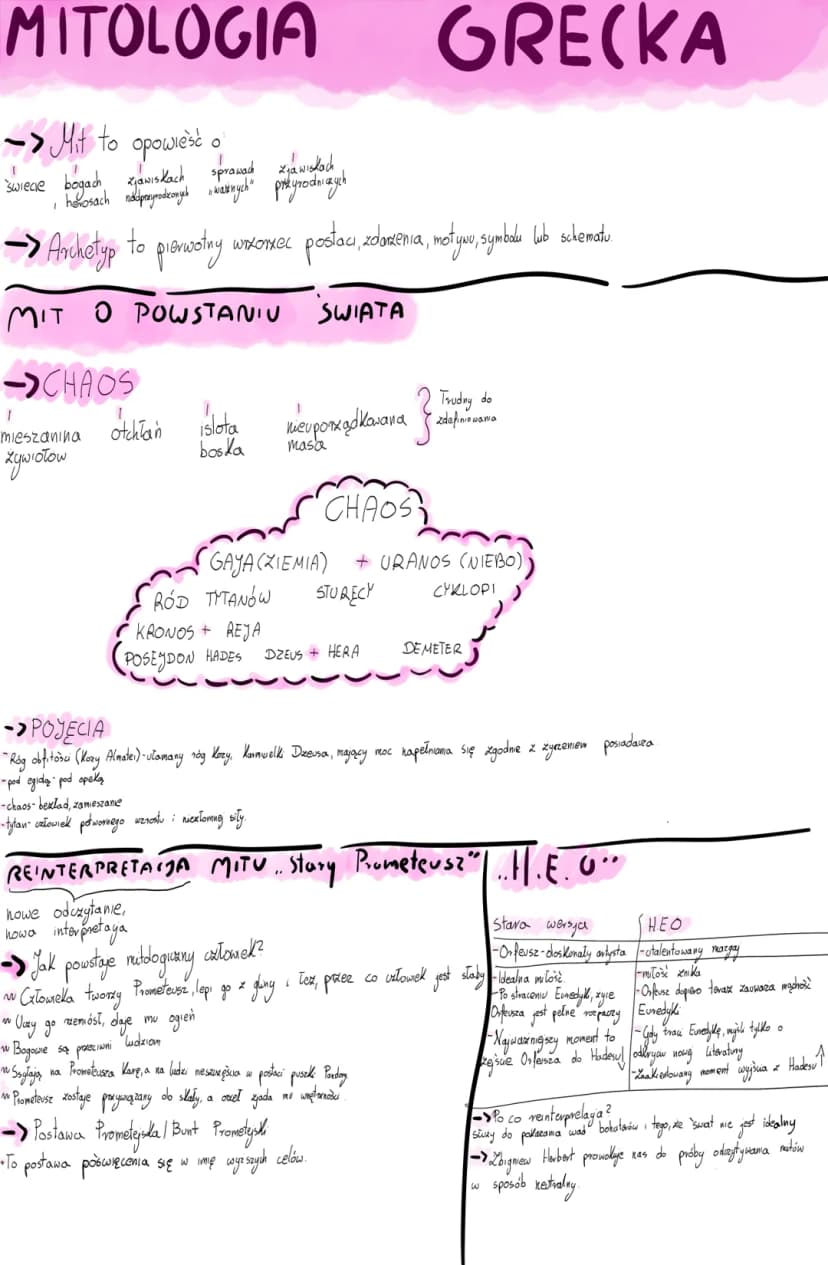 MITOLOGIA GRECKA
-> Mit to opowieść o
świecie bogach, herosach zjawiskach nadprzyrodzonych sprawach "ważnych" zjawiskach przyrodniczych
-> Archetyp to pierwotny wzorzec postaci, zdarzenia, motywu, symbolu lub schematu.
MIT O POWSTANIU ŚWIATA
-> CHAOS
mieszanina żywiołów otchłań istota boska nieuporządkowana masa } Trudny do zdefiniowania
CHAOS
GAJA (ZIEMIA) + URANOS (NIEBO)
RÓD TYTANÓW STURĘCY CYKLOPI
KRONOS + REJA
POSEJDON HADES DZEUS + HERA DEMETER
-> POJĘCIA
- Róg obfitości (Kozy Almatei) - ułamany róg kozy, karmicielki Dzeusa, mający moc napełniania się zgodnie z życzeniem posiadacza.
- pod egidą - pod opieką
- chaos - bezład, zamieszanie
- tytan - człowiek potwornego wzrostu i niezłomnej siły.
REINTERPRETACJA MITU „Stary Prometeusz"
nowe odczytanie,
nowa interpretacja
-> Jak powstaje mitologiczny człowiek?
Człowieka tworzy Prometeusz, lepi go z gliny i łez, przez co człowiek jest słaby
Uczy go rzemiosł, daje mu ogień
Bogowie są przeciwni ludziom
Zsyłają na Prometeusza karę, a na ludzi nieszczęścia w postaci puszki Pandory
Prometeusz zostaje przywiązany do skały, a orzeł zjada mu wnętrzności.
-> Postawa Prometejska / Bunt Prometejski
• To postawa poświęcenia się w imię wyższych celów.
„H.E.O"
Stara wersja H.E.O
- Orfeusz - doskonały artysta
- utalentowany
- Idealna miłość
- miłość znika
- Po straceniu Eurydyki, życie
Orfeusza jest pełne rozpaczy
- Orfeusz dopiero teraz zauważa mądrość
Eurydyki
- Najważniejszy moment to
zejście Orfeusza do Hadesu ↓
- Gdy traci Eurydykę, myśli tylko o
odkryciu nowej literatury
- Zaakcentowany moment wyjścia z Hadesu ↑
-> Po co reinterpretacja?
służy do pokazania wad bohaterów i tego, że świat nie jest idealny
-> Zbigniew Herbert prowokuje nas do próby odczytywania mitów
w sposób neutralny.